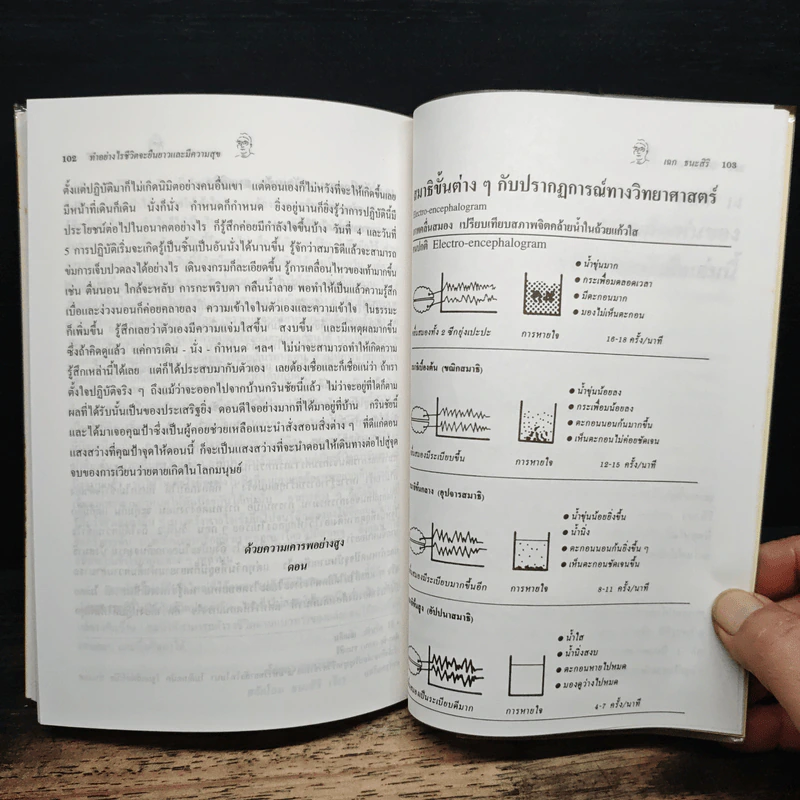 102 ทำอย่างไรชีวิตจะยืนยาวและมีความสุข
ตั้งแต่ปฏิบัติมาก็ไม่เกิดนิมิตอย่างคนอื่นเขา แต่ตอนเองก็ไม่หวังที่จะให้เกิดขึ้นเลย
มีหน้าที่เดินก็เดิน นั่งก็นั่ง กำหนดก็กำหนด ยิ่งอยู่นานก็ยิ่งรู้ว่าการปฏิบัตินี้มี
ประโยชน์ต่อไปในอนาคตอย่างไร ก็รู้สึกค่อยมีกำลังใจขึ้นบ้าง วันที่ 4 และวันที่
5 การปฏิบัติเริ่มจะเกิดรู้เป็นชิ้นเป็นอันนั่งได้นานขึ้น รู้จักว่าสมาธิดีแล้วจะสามารถ
ข่มการเจ็บปวดลงได้อย่างไร เดินจงกรมก็ละเอียดขึ้น รู้การเคลื่อนไหวของเท้ามากขึ้น
เช่น ตื่นนอน ใกล้จะหลับ การกะพริบตา กลืนน้ำลาย พอทำให้เป็นแล้วความรู้สึก
เบื่อและง่วงนอนก็ค่อยคลายลง ความเข้าใจในตัวเองและความเข้าใจ ในธรรมะ
ก็เพิ่มขึ้น รู้สึกเลยว่าตัวเองมีความแจ่มใสขึ้น สงบขึ้น และมีเหตุผลมากขึ้น
ซึ่งถ้าคิดดูแล้ว แค่การเดิน - นั่ง - กำหนด ฯลฯ ไม่น่าจะสามารถทำให้เกิดความ
รู้สึกเหล่านี้ได้เลย แต่ก็ได้ประสบมากับตัวเอง เลยต้องเชื่อและก็เชื่อแน่ว่า ถ้าเรา
ตั้งใจปฏิบัติจริง ๆ ถึงแม้ว่าจะออกไปจากบ้านกรินชัยนี้แล้ว ไม่ว่าจะอยู่ที่ใดก็ตาม
ผลที่ได้รับนั้นเป็นของประเสริฐยิ่ง ตอนดีใจอย่างมากที่ได้มาอยู่ที่บ้าน กรินชัยนี้
และได้มาเจอคุณป้าซึ่งเป็นผู้คอยช่วยเหลือแนะนำสั่งสอนสิ่งต่าง ๆ ที่ดีแก่ตอน
แสงสว่างที่คุณป้าจุดให้ตอนนี้ ก็จะเป็นแสงสว่างที่จะนำตอนให้เดินทางต่อไปสู่จุด
จบของการเวียนว่ายตายเกิดในโลกมนุษย์
ด้วยความเคารพอย่างสูง
ตอน
เฉก ธนะสิริ 103
สมาธิขั้นต่าง ๆ กับปรากฏการณ์ทางวิทยาศาสตร์
Electro-encephalogram
คลื่นสมอง เปรียบเทียบสภาพจิตคล้ายน้ำในถ้วยแก้วใส
ปกติ Electro-encephalogram
● น้ำขุ่นมาก
● กระเพื่อมตลอดเวลา
● มีตะกอนมาก
● มองไม่เห็นตะกอน
สมองทั้ง 2 ซีกยุ่งเปะปะ การหายใจ 16-18 ครั้ง/นาที
เบื้องต้น (ขณิกสมาธิ)
● น้ำขุ่นน้อยลง
● กระเพื่อมน้อยลง
● ตะกอนนอนก้นมากขึ้น
● เห็นตะกอนไม่ค่อยชัดเจน
สมองมีระเบียบขึ้น การหายใจ 12-15 ครั้ง/นาที
ขั้นกลาง (อุปจารสมาธิ)
● น้ำขุ่นน้อยยิ่งขึ้น
● น้ำนิ่ง
● ตะกอนนอนก้นยิ่งขึ้น ๆ
● เห็นตะกอนชัดเจนขึ้น
สมองมีระเบียบมากขึ้นอีก การหายใจ 8-11 ครั้ง/นาที
ขั้นสูง (อัปปนาสมาธิ)
● น้ำใส
● น้ำนิ่งสงบ
● ตะกอนหายไปหมด
● มองดูว่างไปหมด
สมองเป็นระเบียบดีมาก การหายใจ 4-7 ครั้ง/นาที